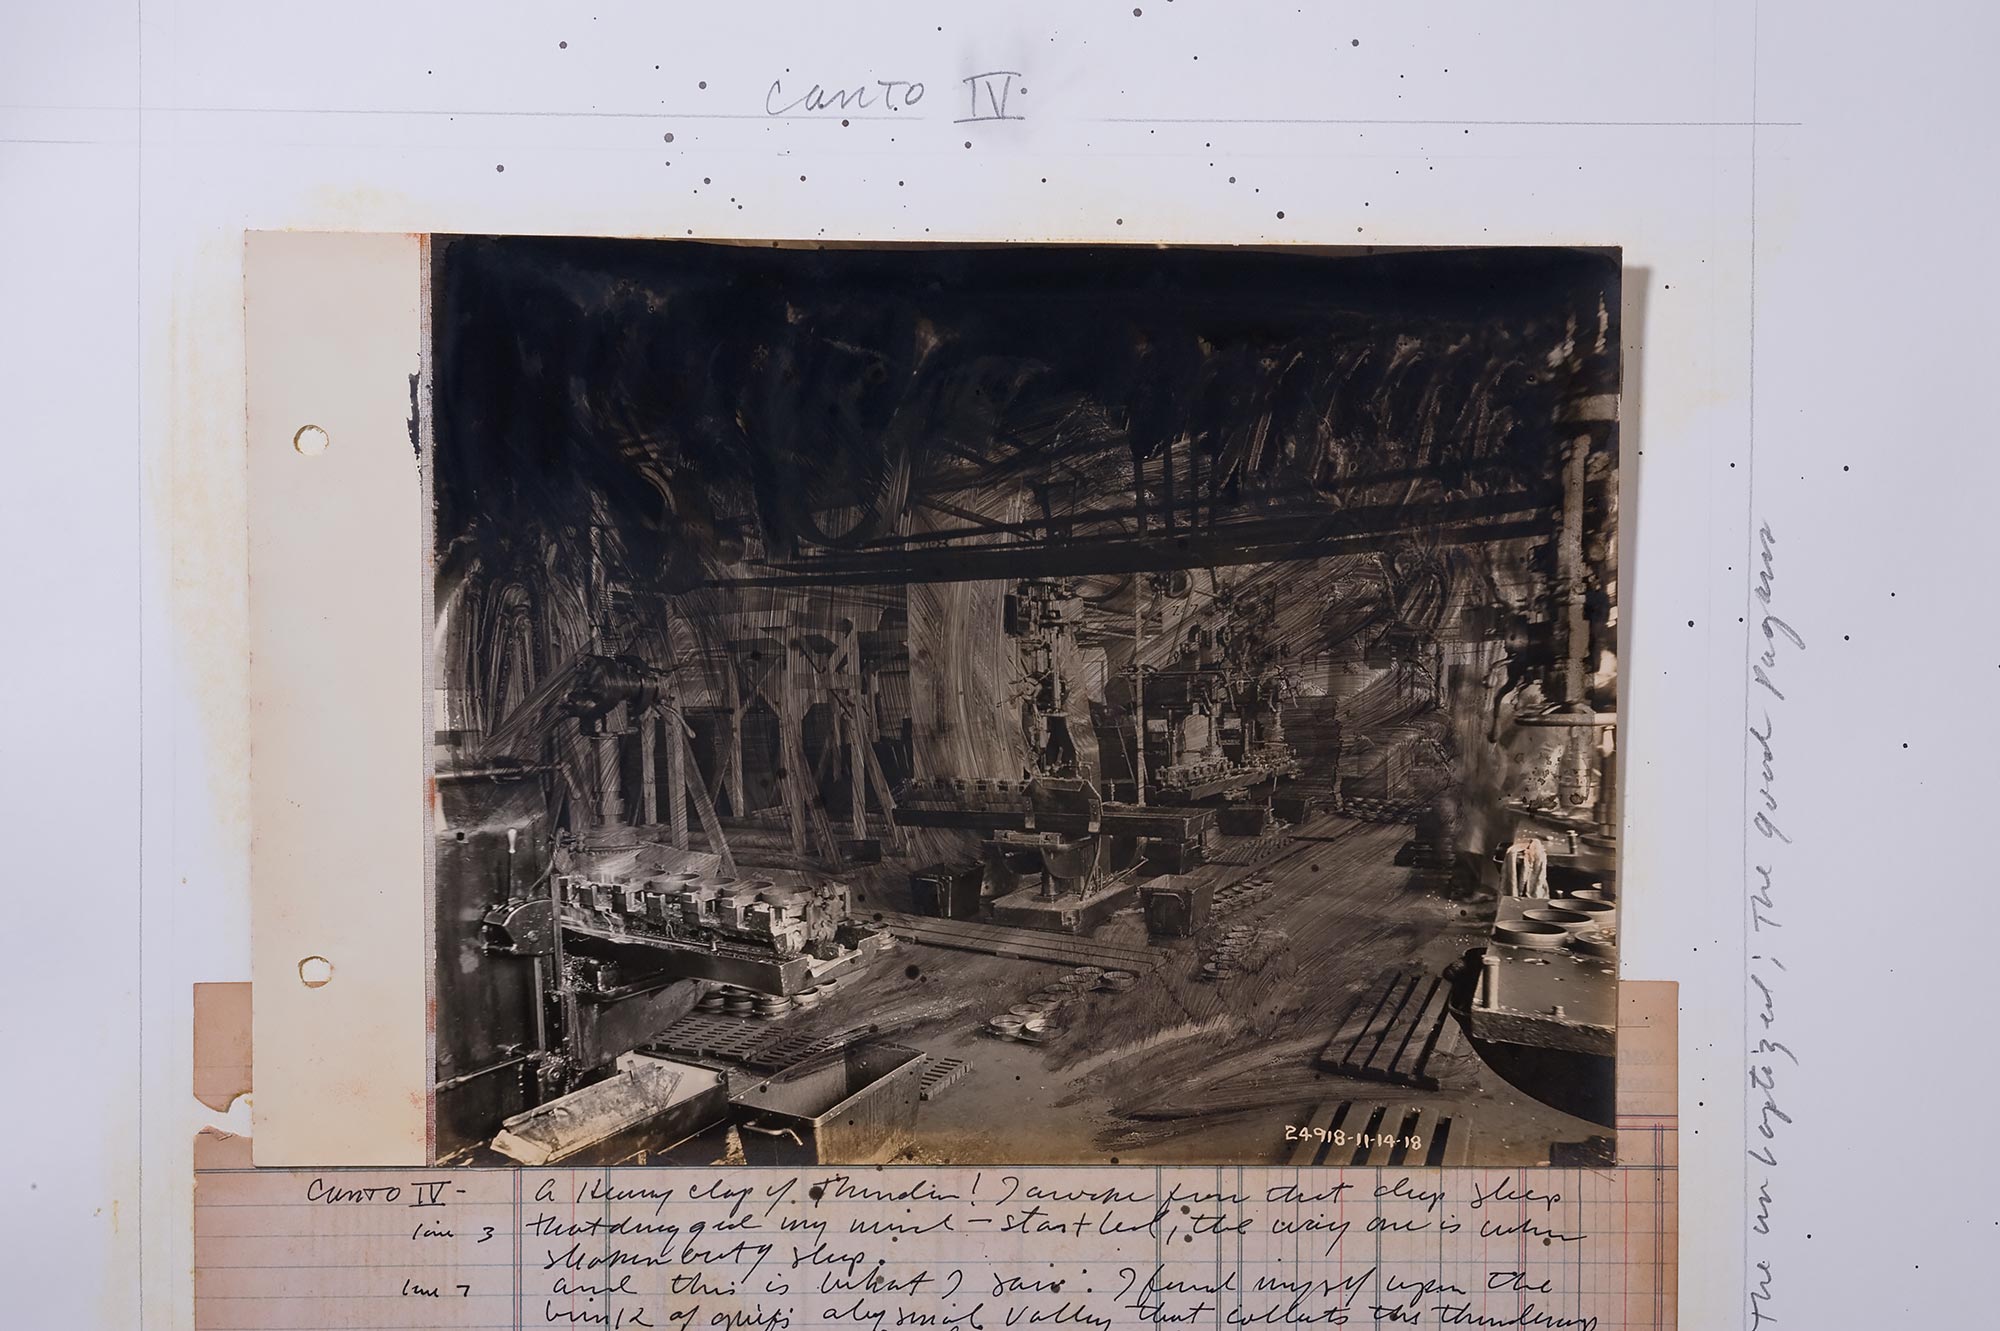 Canto IV
The unbaptized; The good Pagans
24918-11-14-18
Canto IV- A Heavy clap of Thunder! I awoke from that deep sleep
line 3 that drugged my mind - startled, the way one is when
shaken out of sleep.
line 7 and this is what I saw: I found myself upon the
brink of grief's abysmal valley that collects the thunderings